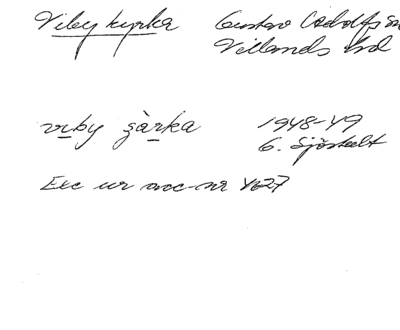 Viby kyrka Gustav Adolfs
Villands hd
viby šàrka 1948-49
G. Sjöstedt
Exc ur acc-nr 4627